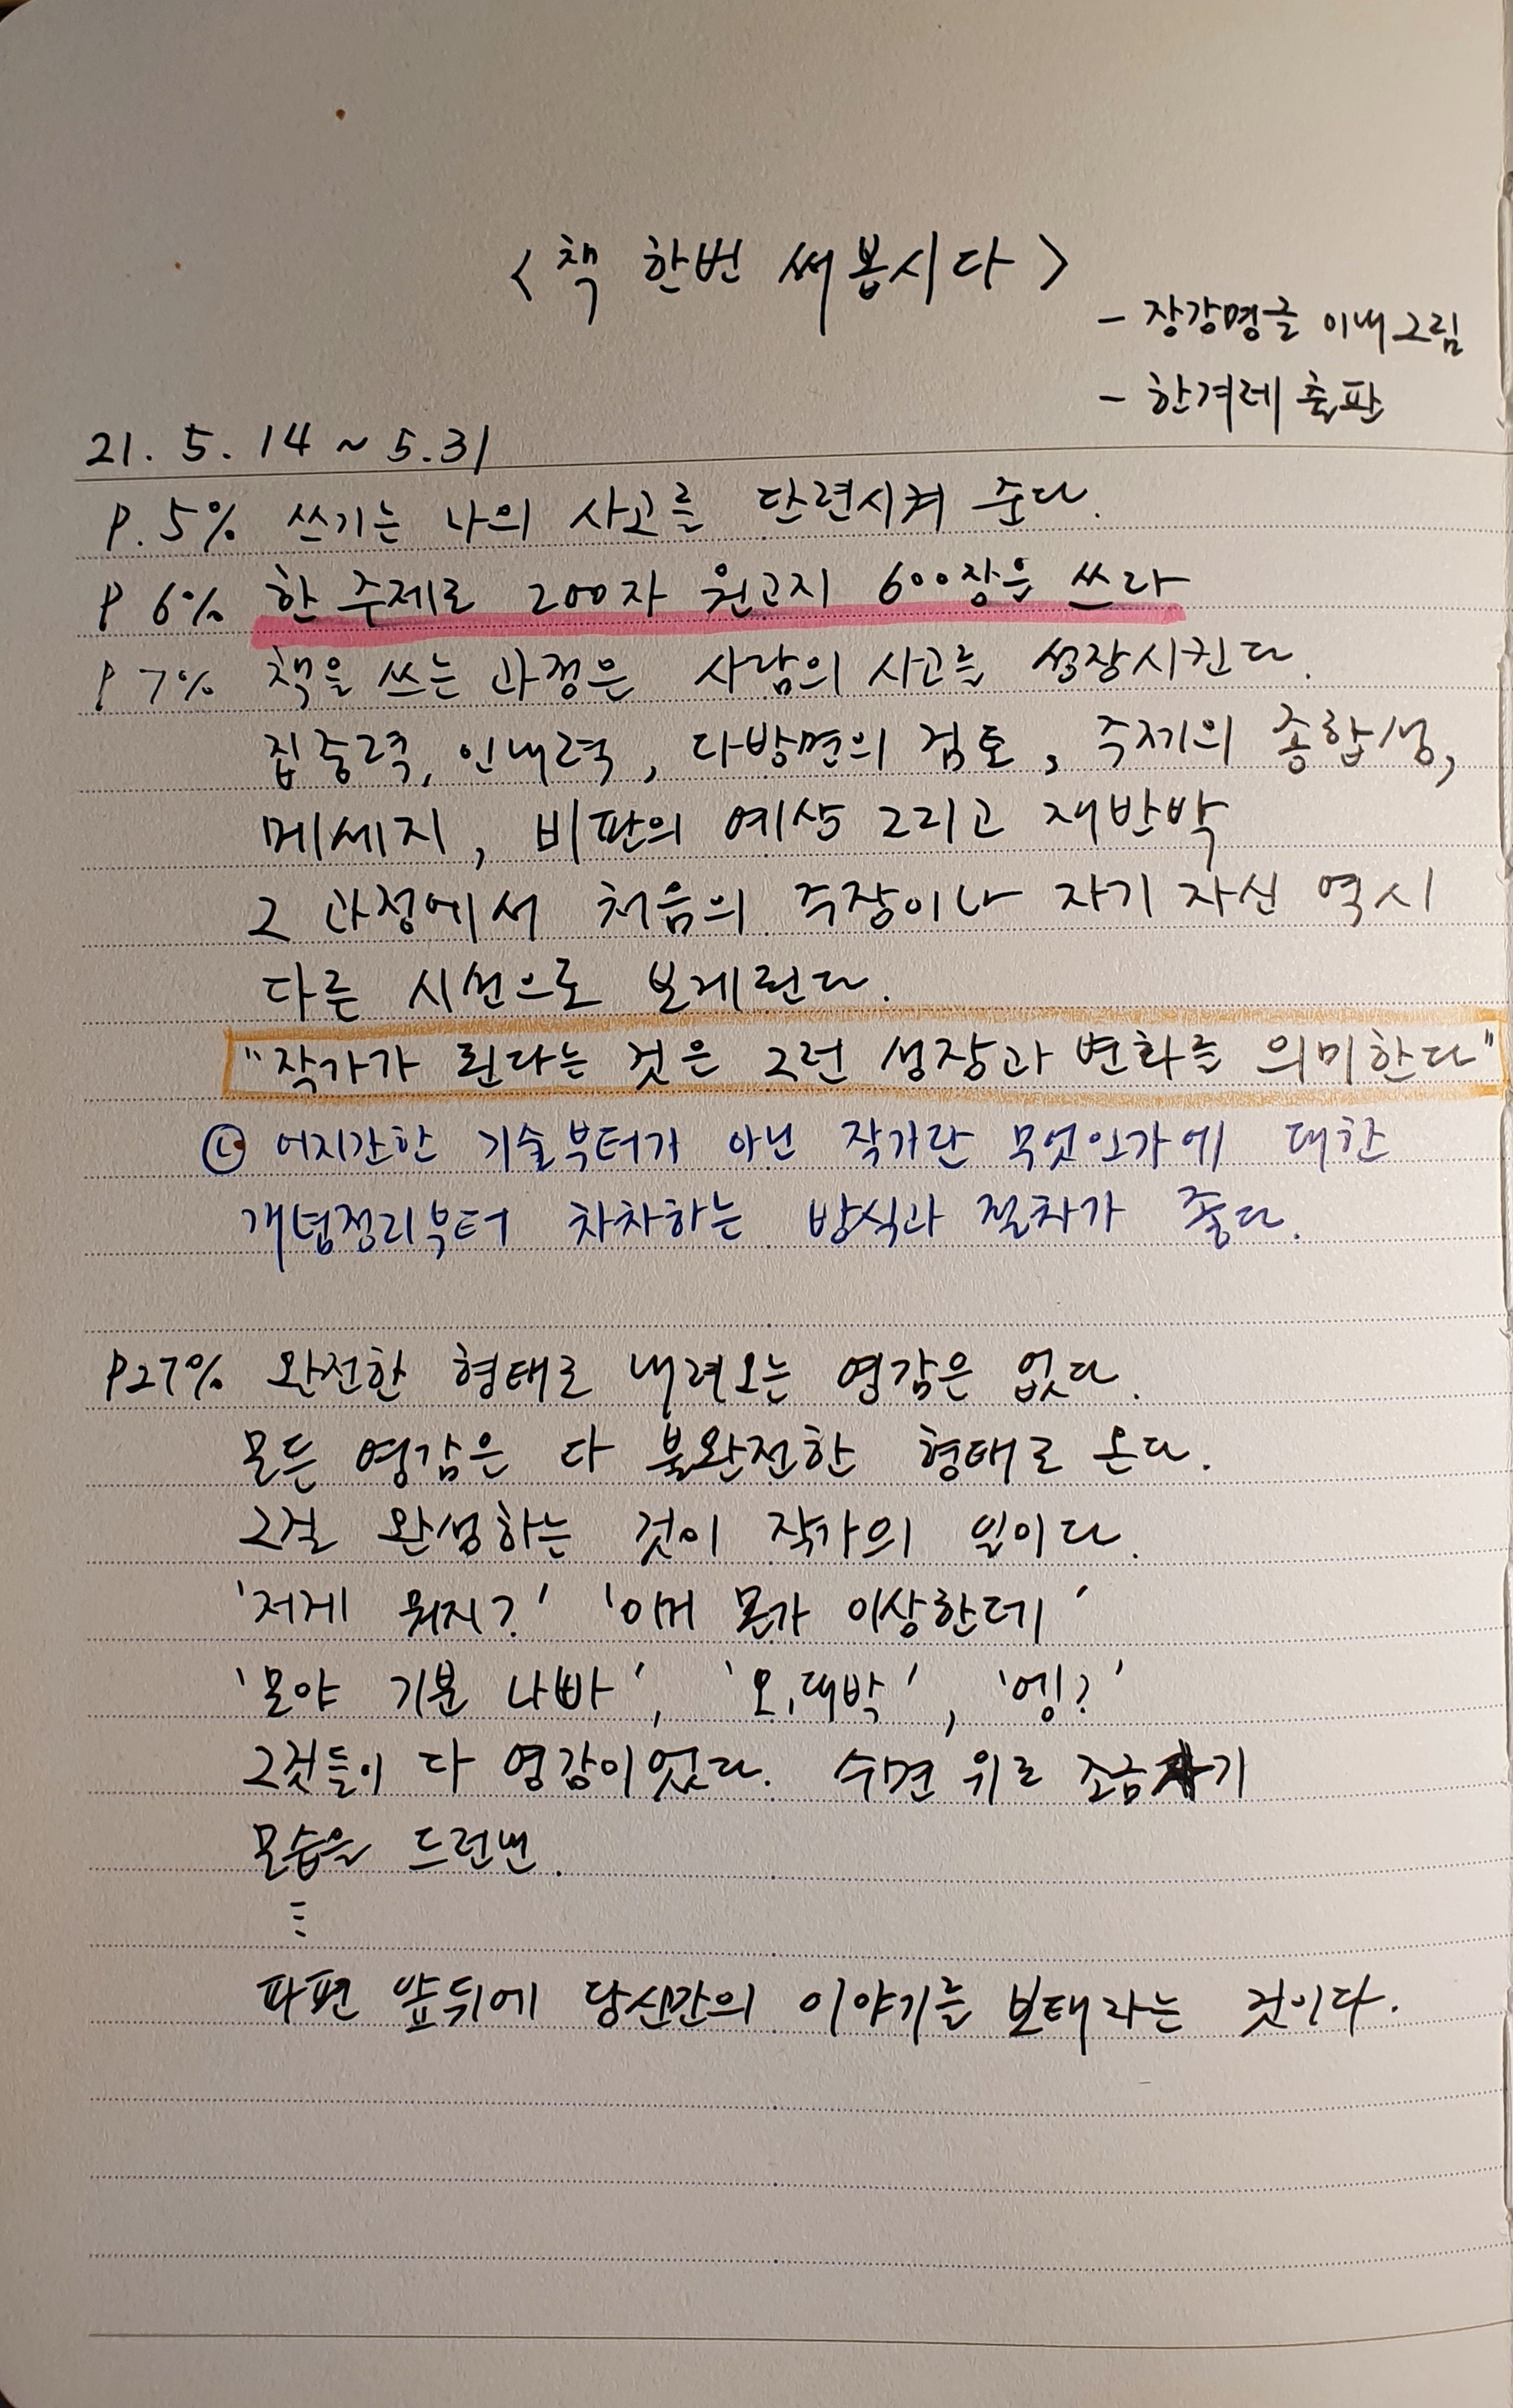 <책 한번 써봅시다>
- 장강명글 이내그림
- 한겨레 출판
21. 5. 14 ~ 5.31
P. 5% 쓰기는 나의 사고를 단련시켜 준다.
P 6% 한 주제로 200자 원고지 600장을 쓰라
P 7% 책을 쓰는 과정은 사람의 사고를 성장시킨다.
집중력, 인내력, 다방면의 검토, 주제의 종합성,
메세지, 비판의 예상 그리고 재반박
그 과정에서 처음의 주장이나 자기 자신 역시
다른 시선으로 보게된다.
"작가가 된다는 것은 그런 성장과 변화를 의미한다"
어지간한 기술부터가 아닌 작가란 무엇인가에 대한
개념정리부터 차차하는 방식과 절차가 좋다.
P27% 완전한 형태로 내려오는 영감은 없다.
모든 영감은 다 불완전한 형태로 온다.
그걸 완성하는 것이 작가의 일이다.
'저게 뭐지?' '이거 몬가 이상한데'
'모야 기분 나빠', '오, 대박', '엥?'
그것들이 다 영감이었다. 수면 위로 조금 자기
모습을 드런낸.
⋮
파편 앞뒤에 당신만의 이야기를 보태라는 것이다.